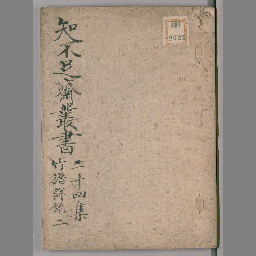 知不足齋叢書
二十四集
竹譜詳錄二